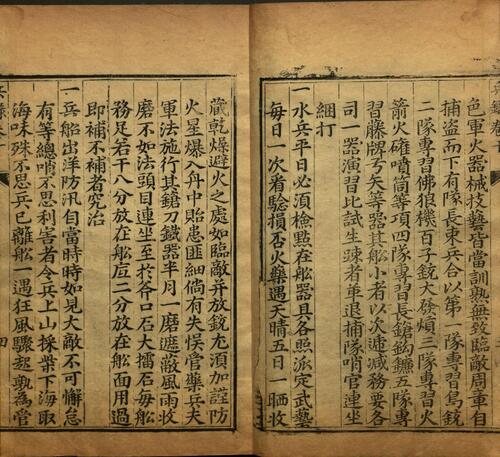 色軍火器械技藝皆當訓熟無致臨敵周章自
捕盜而下有隊長束兵合以第一隊專習鳥銃
二隊專習佛狼機百子銃大發熕三隊專習火
箭火確噴筒等項四隊專習長鎗鈎鐮五隊專
習藤牌弓矢等器其船小者以次遞減務要各
司一器演習比試生疎者革退捕隊哨官連坐
綑打
一水兵平日必須檢點在船器具各照派定武藝
每日一次看驗損否火藥遇天晴五日一晒收
藏乾燥避火之處如臨敵并放銃尤須加謹防
火星爆入舟中貽患匪細倘有失悞管藥兵夫
軍法施行其鎗刀鐵器半月一磨遮蔽風雨收
磨不如法頭目連坐至於斧口石大擂石每船
務足若干八分放在船底二分放在船面用過
即補不補者究治
一兵船出洋防汛自當時時如見大敵不可懈怠
有等總哨不思利害者令兵上山採柴下海取
海味殊不思兵已離船一遇狂風驟起孰為管
四